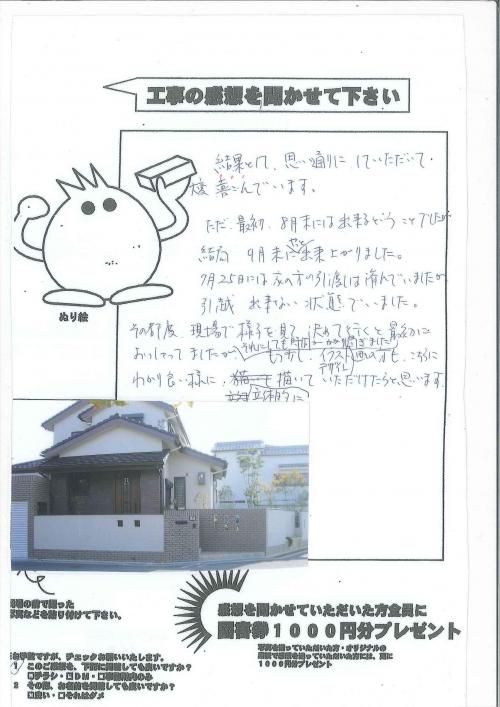 工事の感想を聞かせて下さい
結果として、思い通りに、していただいて、
大変 喜こんでいます。
ただ、最初、8月末には出来るということでしたが
結局 9月末にやっと出来上がりました。
7月25日には 次の方の引渡しは済んでいましたが
引越 出来ない 状態でいました。
その都度、現場で様子を見て 決めて行くと 最初に
おっしゃってましたが、それにしても時間がかかり過ぎました
もう少し、イラスト画の才も、こちらに
デザイン
わかり良い様に、描いていただけたらと思います
立体的に
ぬり絵
現場の前で撮った
写真などを貼り付けて下さい。
感想を聞かせていただいた方全員に
図書券1000円分プレゼント
写真を撮っていただいた方・オリジナルの
1000円分プレゼント
お手数ですが、チェックお願いいたします。
1 このご感想を、下記に掲載しても良いですか?
□チラシ・□DM・□事務所内のみ
2 その際、お名前を掲載しても良いですか?
□良い・□それはダメ